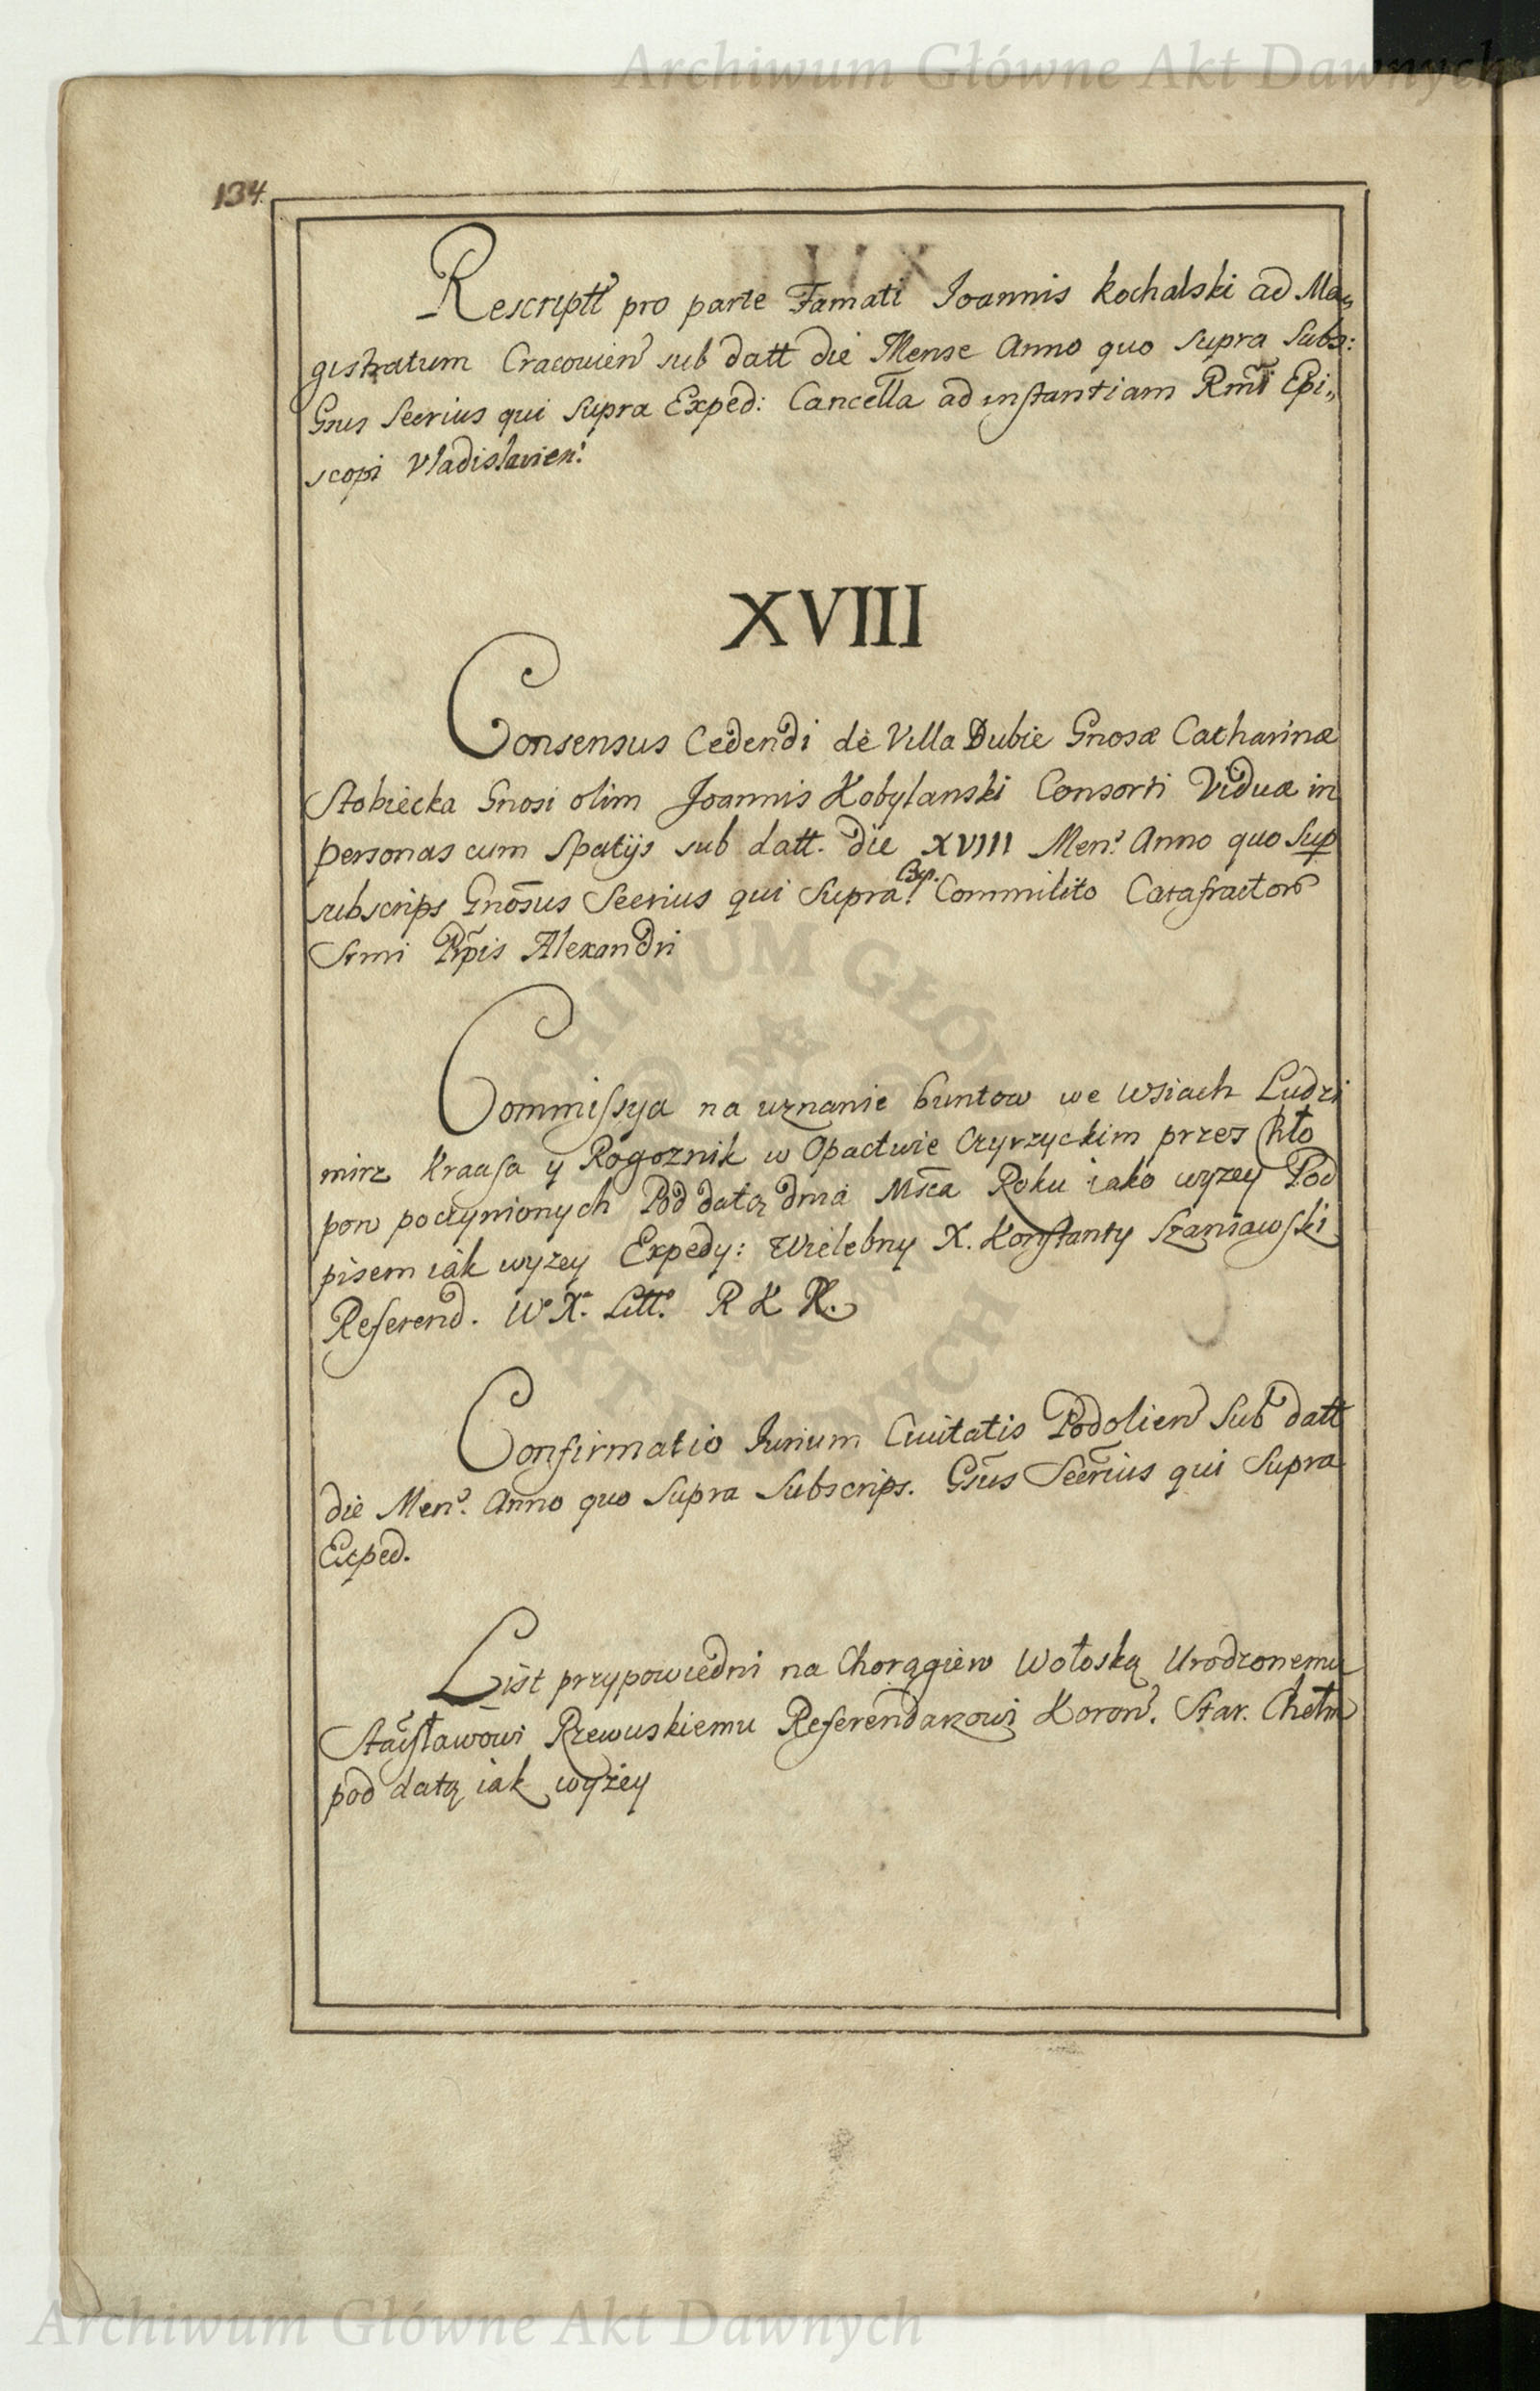 Archiwum Główne Akt Dawnych
134.
Rescriptt pro parte Famati Joannis Kochalski ad Ma„
gistratum Cracovien sub datt die Mense Anno quo supra Subs:
Gsus Seerius qui supra Exped: Cancella ad instantiam Rmi Epi„
scopi Vladislavien:
XVIII
Consensus Cedendi de Villa Dubie Gnosæ Catharinæ
Stobiecka Gnosi olim Joannis Kobylanski Consorti Viduæ in
personas cum Spatijs sub datt. die XVIII Men: Anno quo Sup
subscrips Gnosus Seerius qui Supra Exp. Commilito Catafractor
Srmi Rpis Alexandri
Commissya na uznanie buntow we Wsiach Ludzi
mirz Krausa y Rogoznik w Opactwie Czyrzyckim przez Chło
pow poczynionych Pod datą dnia Msca Roku iako wyzey Pod
pisem iak wyzey Expedy: Wielebny X. Konstanty Szaniawski
Referend. W. X. Litt. R K K.
Confirmatio Iurium Civitatis Podolien Sub datt
die Men: Anno quo Supra Subscrips. Gsus Seerius qui Supra
Exped.
List przypowiedni na Chorągiew Wołoską Urodzonemu
Stasławowi Rzewuskiemu Referendarzowi Koron. Star. Chełm
pod datą iak wyżey
ARCHIWUM GŁÓWNE AKT DAWNYCH
Archiwum Główne Akt Dawnych